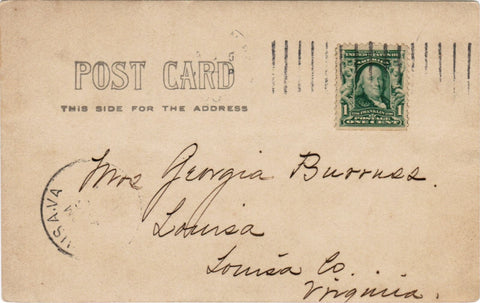 POST CARD
THIS SIDE FOR THE ADDRESS
1 1
POSTAGE
ONE CENT
Mrs Georgia Burruss.
Louisa
Louisa Co.
Virginia.